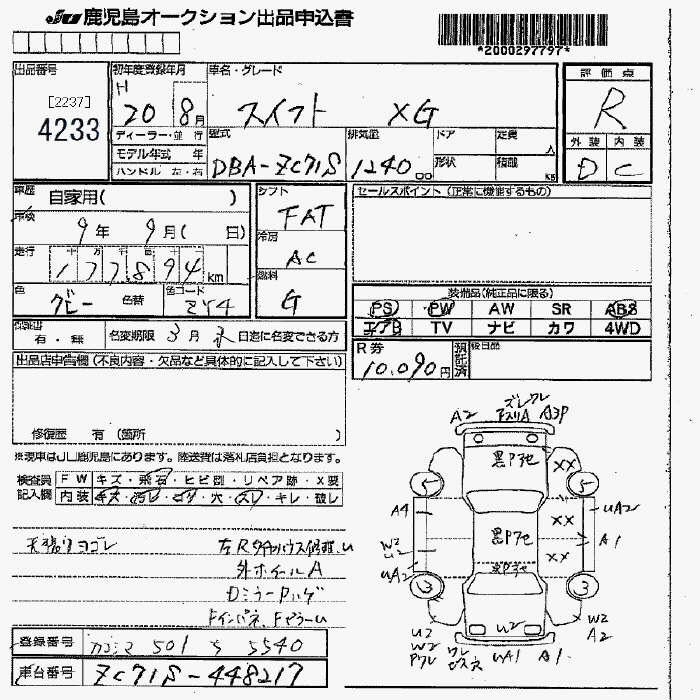 JU 鹿児島オークション出品申込書
*2000297797*
出品番号
[2237]
4233
初年度登録年月
H 20 8月
ディーラー・並行
モデル年式 年
ハンドル 左・右
車名・グレード
スイフト XG
型式
DBA-ZC71S
排気量
1240 cc
ドア
形状
定員 人
積載 KG
評価点
R
外装 内装
D C
車歴
自家用( )
車検
9年 9月( 日)
走行
177894 km
色
グレー 色替
色コード
ZY4
シフト
FAT
冷房
AC
燃料
G
セールスポイント (正常に機能するもの)
装備品(純正品に限る)
PS PW AW SR ABS
エアB TV ナビ カワ 4WD
有・無
名変期限 3月末日迄に名変できる方
R券
10,090円
預託済
後日品
出品店申告欄(不良内容・欠品など具体的に記入して下さい)
修復歴 有 (箇所 )
※現車はJU鹿児島にあります。陸送費は落札店負担となります。
検査員記入欄
FW キズ・飛石・ヒビ割・リペア跡・X要
内装 キズ・汚レ・コゲ・穴・スレ・キレ・破レ
天張りヨゴレ
左Rタイヤハウス修理、U
外ホイールA
Dミラー
Fインパネ、Fピラーu
登録番号
カゴシマ 501 ち 5540
車台番号
ZC71S-448217
A2
ズレワレ
A3P
黒Pアセ
XX
5 5
A4
UA2
XX
黒Pアセ
A1
W2
U2
XX
UA2
3 3
U2
W2
Pワレ
U2
W2
A2
UA1 A1